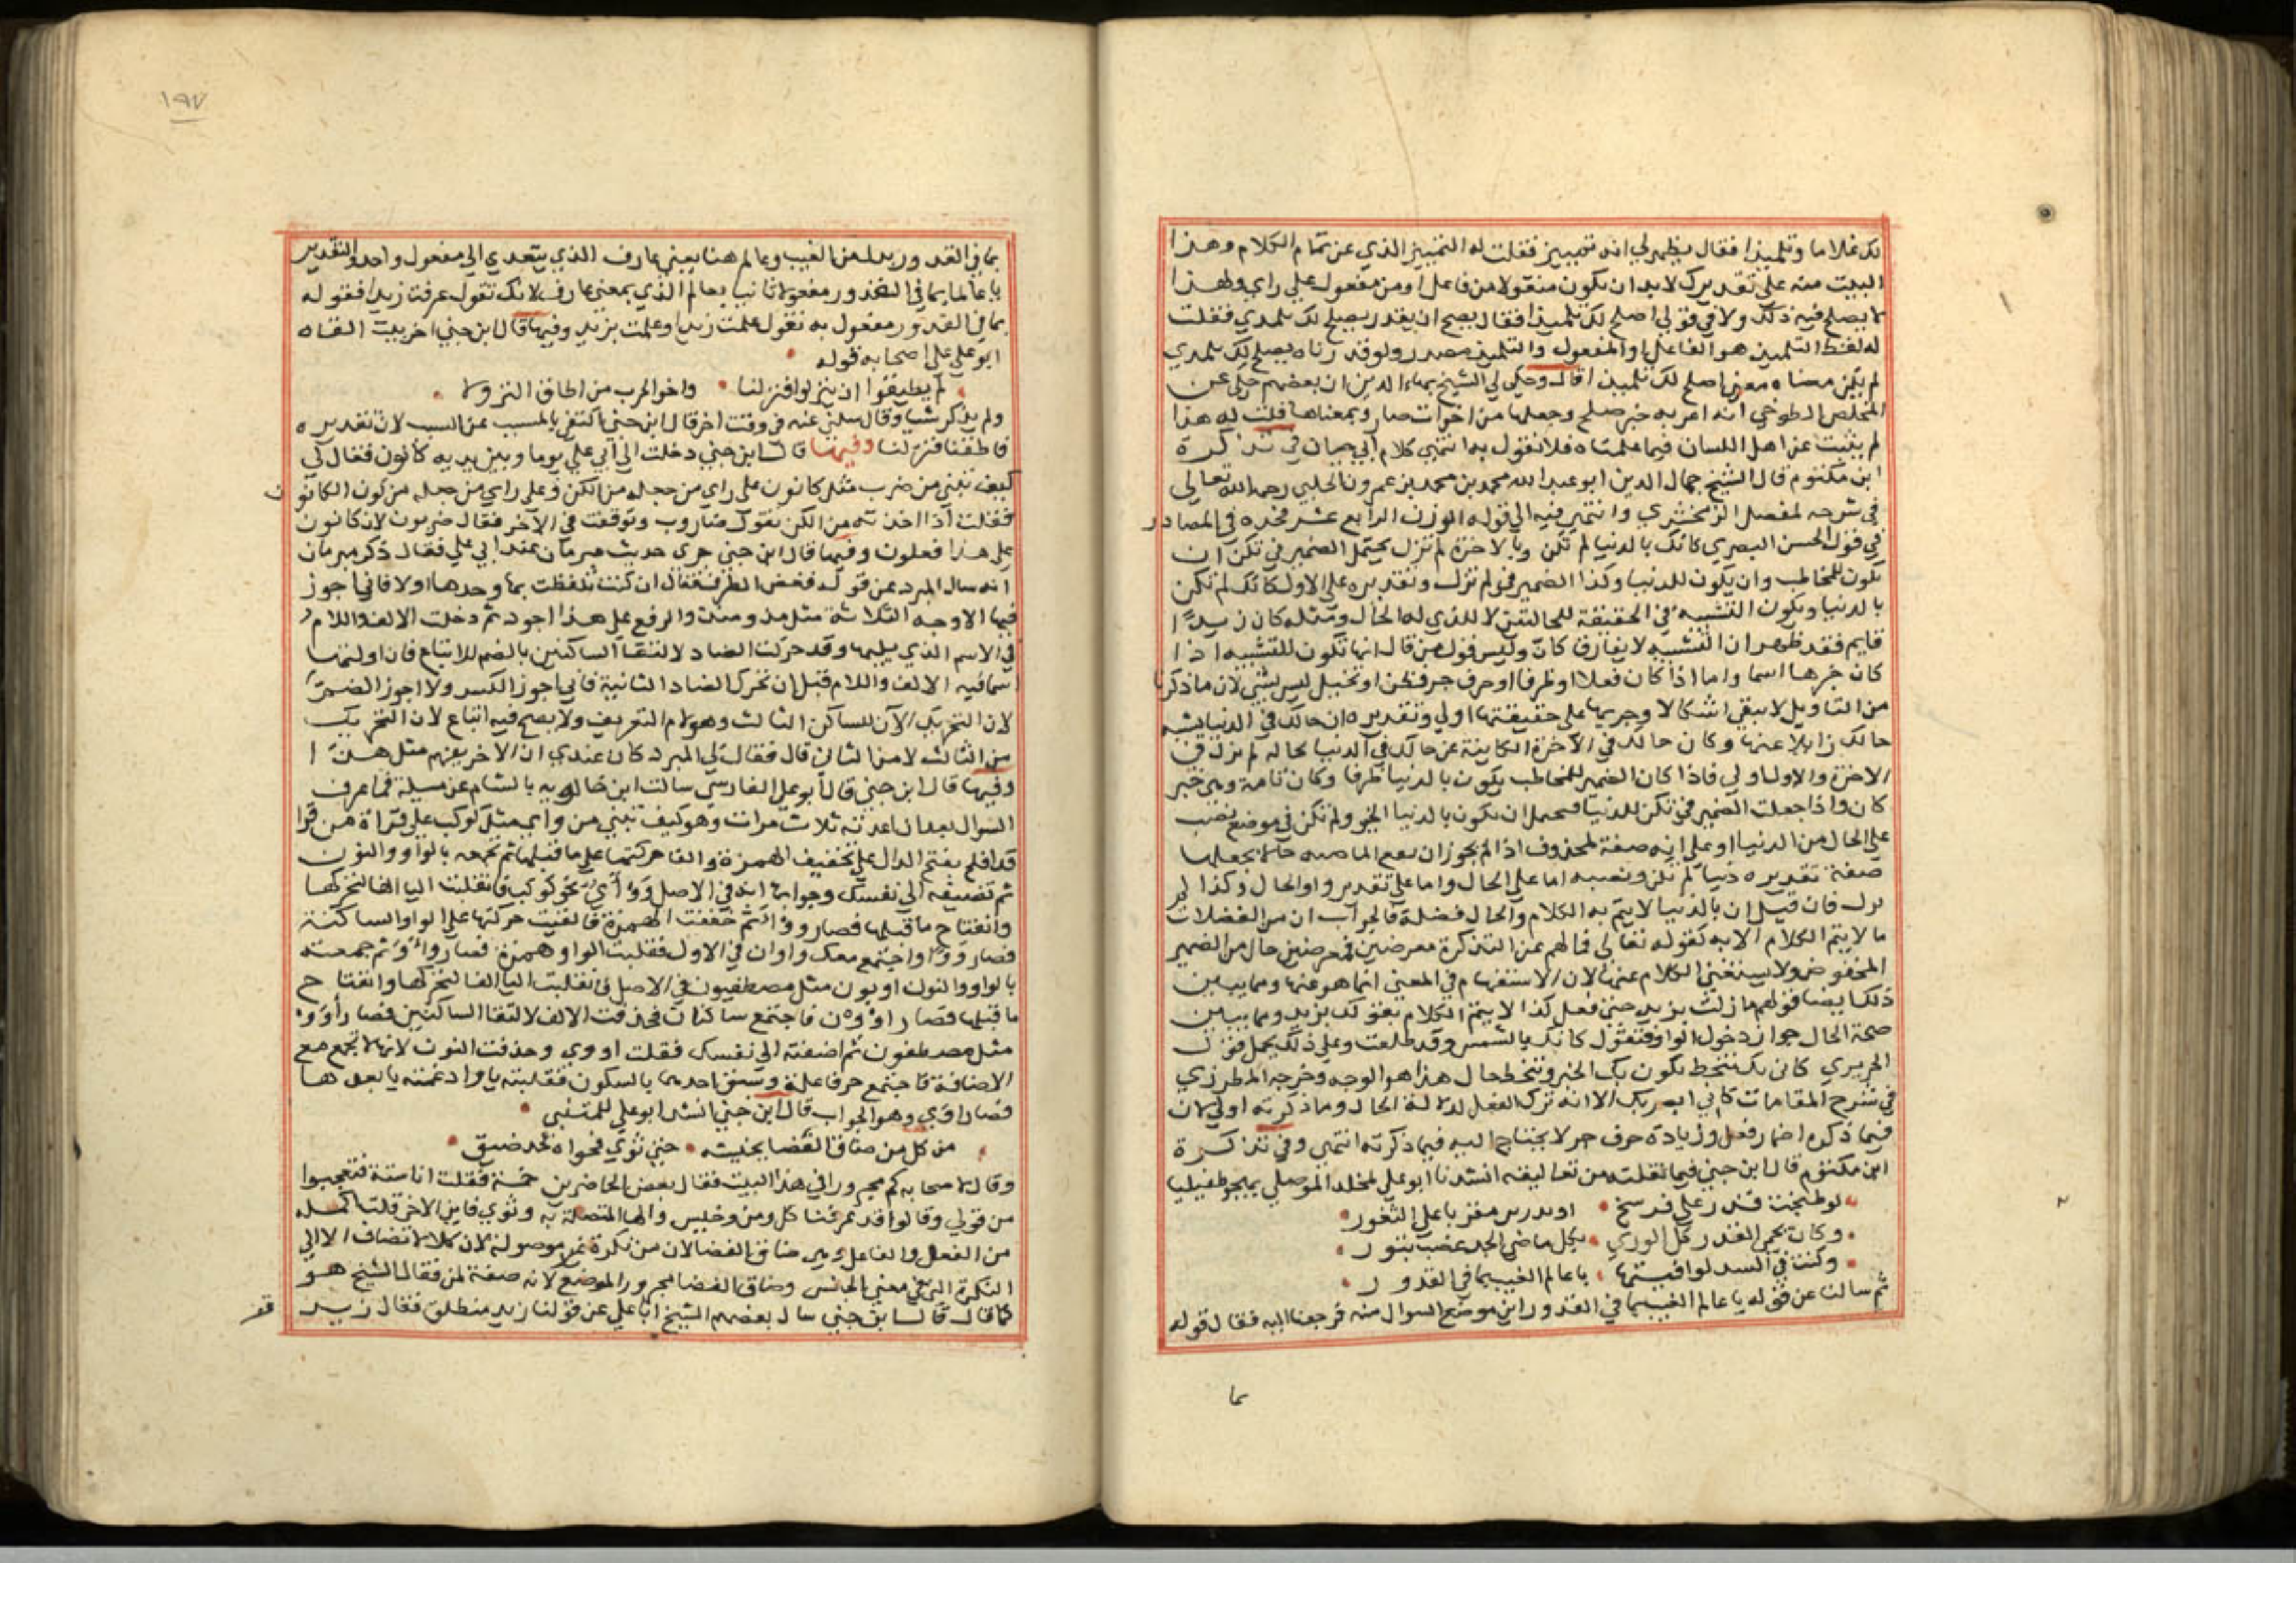 لك غلاما وتلميذا فقال يظهر لي انه تمييز فقلت له التمييز الذي عن تمام الكلام وهذا
البيت منه على تقديرك لا بد ان يكون منقولا من فاعل او من مفعول على راي وهذا
لا يصلح فيه ذلك ولا في قولي اصلح لك تلميذا فقال يصح ان يقدر يصلح لك تلمذي فقلت
له لفظ التلميذ هو الفاعل او المفعول والتلميذ مصدر ولو قدرناه يصلح لك تلمذي
لم يكن معناه معنى اصلح لك تلميذا قال وحكى لي الشيخ بهاء الدين ان بعضهم حكى عن
المخلص الطوخي انه اعربه خبر صلح وجعلها من اخوات صار وبمعناها قلت له هذا
لم يثبت عن اهل اللسان فيما علمناه فلا نقول به انتهى كلام ابي حيان في تذكرة
ابن مكتوم قال الشيخ جمال الدين ابو عبد الله محمد بن محمد بن عمرون الحلبي رحمه الله تعالى
في شرحه لمفصل الزمخشري وانتهى فيه الى قوله الوزن الرابع عشر في المصادر
في قول الحسن البصري كانك بالدنيا لم تكن وبالاخرة لم تزل يحتمل الضمير في تكن ان
يكون للمخاطب وان يكون للدنيا وكذا الضمير في لم تزل وتقديره على الاول كانك لم تكن
بالدنيا ويكون التشبيه في الحقيقة للحالتين لا للذي له الحال ومثله كان زيدا
قايم فقد ظهر ان التشبيه لا يفارق كان وليس قول من قال انها تكون للتشبيه اذا
كان خبرها اسما واما اذا كان فعلا او ظرفا او حرف جر فظن او تخييل ليس بشيء لان ما ذكرنا
من التاويل لا يبقى اشكالا وجريها على حقيقتها اولى وتقديره ان حالك في الدنيا يشبه
حالك زايلا عنها وكان حالك في الاخرة الكاينة عن حالك في الدنيا بحاله لم تزل في
الاخرة والاول اولى فاذا كان الضمير للمخاطب يكون بالدنيا ظرفا وكان تامة وهي خبر
كان واذا جعلت الضمير في تكن للدنيا فيحتمل ان يكون بالدنيا الخبر ولم تكن في موضع نصب
على الحال من الدنيا او على انه صفة لمحذوف اذا لم يجوز ان يقع الماضي حالا يجعلها
صفة تقديره دنيا لم تكن ونصبه اما على الحال واما على تقدير واو الحال وكذا لم
تزل فان قيل ان بالدنيا لا يتم به الكلام والحال فضلة فالجواب ان من الفضلات
ما لا يتم الكلام الا به كقوله تعالى فما لهم عن التذكرة معرضين فمعرضين حال من الضمير
المخفوض ولا يستغني الكلام عنها لان الاستفهام في المعنى انما هو عنها ومما يبين
ذلك ايضا قولهم ما زلت بزيد حتى فعل كذا لا يتم الكلام بقولك بزيد ومما يبين
صحة الحال جواز دخول الواو فتقول كانك بالشمس وقد طلعت وعلى ذلك يحمل قول
الحريري كاني بك تنحط يكون بك الخبر وتنحط حال هذا هو الوجه وخرجه المطرزي
في شرح المقامات كاني ابصر بك الا انه ترك الفعل لدلالة الحال وما ذكرته اولى لان
فيما ذكره اضمار فعل وزيادة حرف جر لا يحتاج اليه فيما ذكرته انتهى وفي تذكرة
ابن مكتوم قال ابن جني فيما نقلته من تعاليقه انشدنا ابو علي لمخلد الموصلي يهجو طفيليا
لو طبخت قدر على فرسخ او بدرب مقر با على الثغور
وكان يحمي القدر كل الورى بكل ماضي الحد عضب بتور
وكنت في السد لوافيتها يا عالم الغيب بما في القدور
ثم سالنا عن قوله يا عالم الغيب بما في القدور اين موضع السوال منه فرجعنا اليه فقال قوله
بما
١٩٧
بما في القدور بدل من الغيب وعالم هنا بمعنى عارف الذي يتعدى الى مفعول واحد والتقدير
يا عالما بما في القدور مفعولا ثانيا بعالم الذي بمعنى عارف لانك تقول عرفت زيدا فقوله
بما في القدور مفعول به تقول علمت زيدا وعلمت بزيد وفيها قال ابن جني اخر بيت القاه
ابو علي على اصحابه قوله
لم يطيقوا ان ينزلوا فنزلنا واخو الحرب من اطاق النزولا
ولم يذكر شيا وقال سلني عنه في وقت اخر قال ابن جني اكتفى بالمسبب عن السبب لان تقديره
فاطقنا فنزلنا وفيها قال ابن جني دخلت الى ابي علي يوما وبين يديه كانون فقال لي
كيف تبني من ضرب مثل كانون على راي من جعله من الكن وعلى راي من جعله من كون الكانون
فقلت اذا اخذته من الكن تقول ضاروب وتوقفت في الاخر فقال ضربون لان كانون
على هذا فعلون وفيها قال ابن جني جرى حديث مبرمان عند ابي علي فقال ذكر مبرمان
انه سال المبرد عن قوله فغض الطرف فقال ان كنت تلفظت بها وحدها اولا فاني اجوز
فيها الاوجه الثلاثة مثل مذ ومنذ والرفع على هذا اجود ثم دخلت الالف واللام
في الاسم الذي يليها وقد حركت الضاد لالتقا الساكنين بالضم للاتباع فان اوليتها
اسما فيه الالف واللام قبل ان تحرك الضاد الثانية فاني اجوز الكسر ولا اجوز الضم
لان التحريك الان للساكن الثالث وهو لام التعريف ولا يصح فيه اتباع لان التحريك
من الثالث لا من الثاني قال فقال لي المبرد كان عندي ان لا اخر يفهم مثل هذا
وفيها قال ابن جني قال ابو علي الفارسي سالت ابن خالويه بالشام عن مسيلة فما عرف
السوال بعد ان اعدته ثلاث مرات وهو كيف تبني من واي مثل كوكب على قراة من قرا
قد افلح بفتح الدال على تخفيف الهمزة والقا حركتها على ما قبلها ثم تجمعه بالواو والنون
ثم تضيفه الى نفسك وجوابها انه في الاصل ووأي نحو كوكب فانقلبت اليا الفا لتحركها
وانفتاح ما قبلها فصار ووأا ثم خففت الهمزة فالقيت حركتها على الواو الساكنة
فصار ووا واجتمع معك واوان في الاول فقلبت الواو همزة فصار ثم جمعته
بالواو والنون اويون مثل مصطفيون في الاصل فانقلبت اليا الفا لتحركها وانفتاح
ما قبلها فصار اواون فاجتمع ساكنان فحذفت الالف لالتقا الساكنين فصار أوون
مثل مصطفون ثم اضفته الى نفسك فقلت اووي وحذفت النون لانها لا تجمع مع
الاضافة فاجتمع حرفا علة وسبق احدهما بالسكون فقلبته يا وادغمته يا بعدها
فصار اوي وهو الجواب قال ابن جني انشد ابو علي للمتنبي
من كل من ضاق الفضا بجيشه حتى ثوى فحواه لحد ضيق
وقال لاصحابه كم مجرورا في هذا البيت فقال بعض الحاضرين خمسة فقلت انا ستة فتعجبوا
من قولي وقالوا قد عرفنا كل ومن وجيش والها المتصلة به وثوى فاين الاخر قلت الجملة
من الفعل والفاعل وهي ضاق الفضا لان من نكرة غير موصولة لان كلا لا تضاف الا الى
النكرة التي في معنى الجنس وضاق الفضا مجرور الموضع لانه صفة لمن فقال الشيخ هو
كما قال قال ابن جني سال بعضهم الشيخ ابا علي عن قولنا زيد منطلق فقال زيد